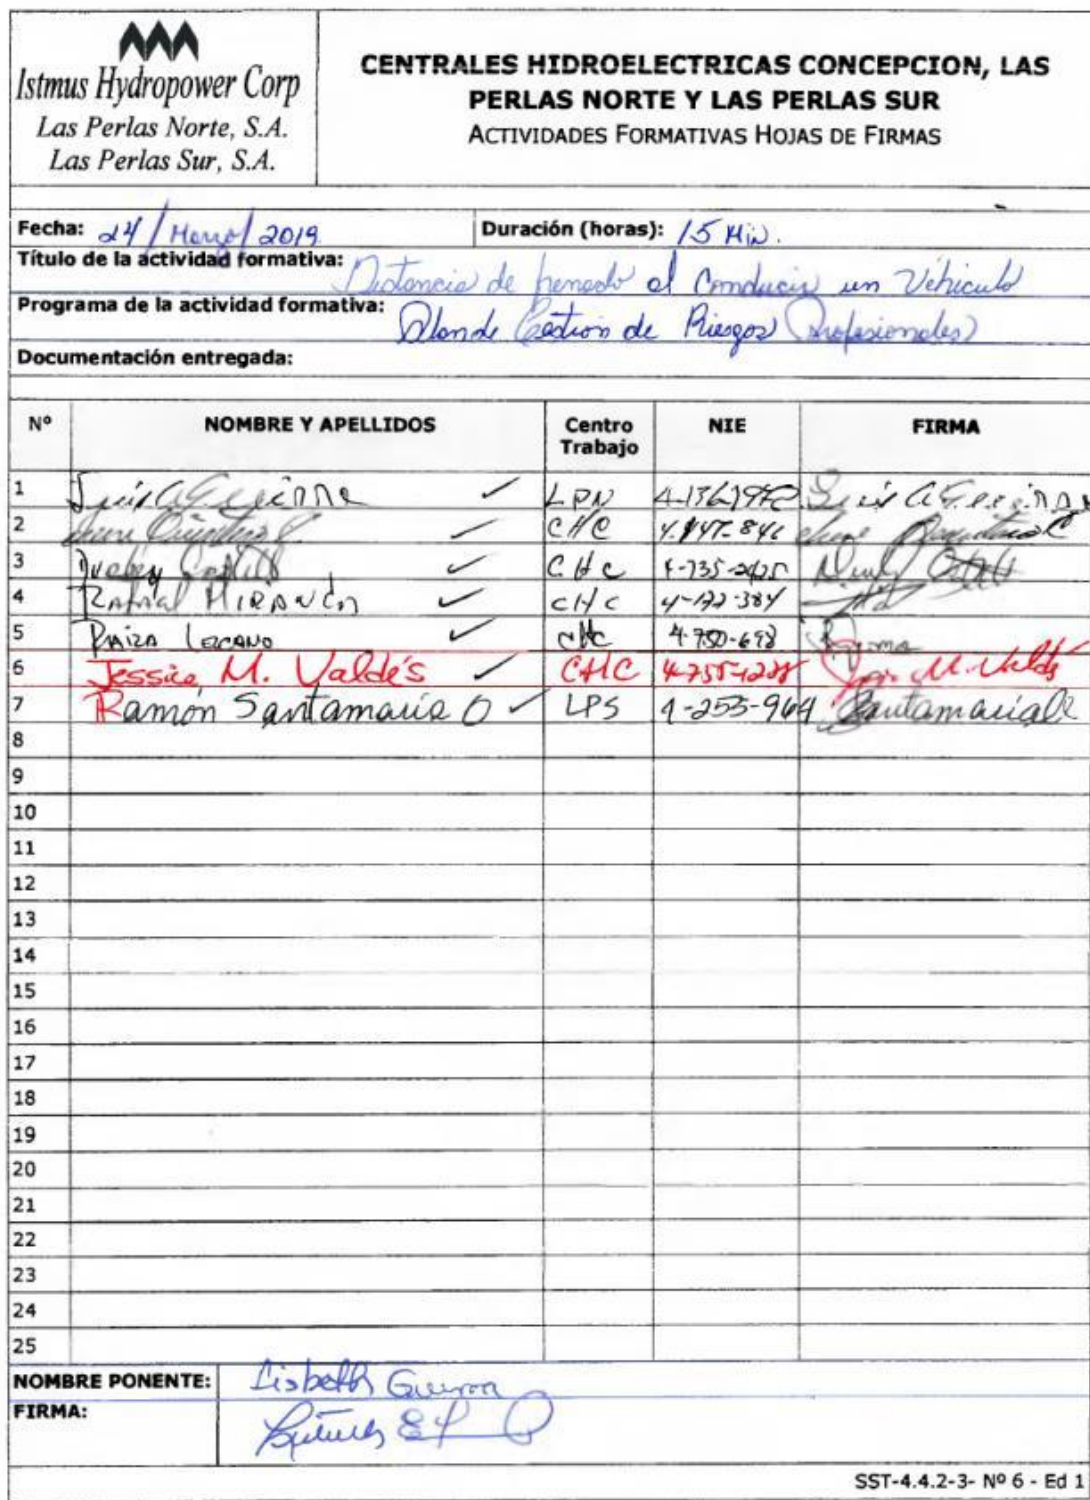 Istmus Hydropower Corp
Las Perlas Norte, S.A.
Las Perlas Sur, S.A.
CENTRALES HIDROELECTRICAS CONCEPCION, LAS
PERLAS NORTE Y LAS PERLAS SUR
ACTIVIDADES FORMATIVAS HOJAS DE FIRMAS
Fecha: 24/Marzo/2019 Duración (horas): 15 Min.
Título de la actividad formativa: Distancia de frenado al Conducir un Vehiculo
Programa de la actividad formativa: Plan de Gestion de Riesgos Profesionales
Documentación entregada:
Nº NOMBRE Y APELLIDOS Centro Trabajo NIE FIRMA
1 Luis A Guerra ✓ LPN Luis A Guerra
2 ✓ CHC 4.147-846
3 ✓ CHC 4-735-2425
4 Rafael MIRANDA ✓ CHC 4-172-384
5 RAIZA LEZCANO ✓ CHC 4-750-698
6 Jessica M. Valdés ✓ CHC M. Valdés
7 Ramón Santamaria O ✓ LPS 4-253-964 Santamaria
8
9
10
11
12
13
14
15
16
17
18
19
20
21
22
23
24
25
NOMBRE PONENTE: Lisbeth Guerra
FIRMA:
SST-4.4.2-3- Nº 6 - Ed 1